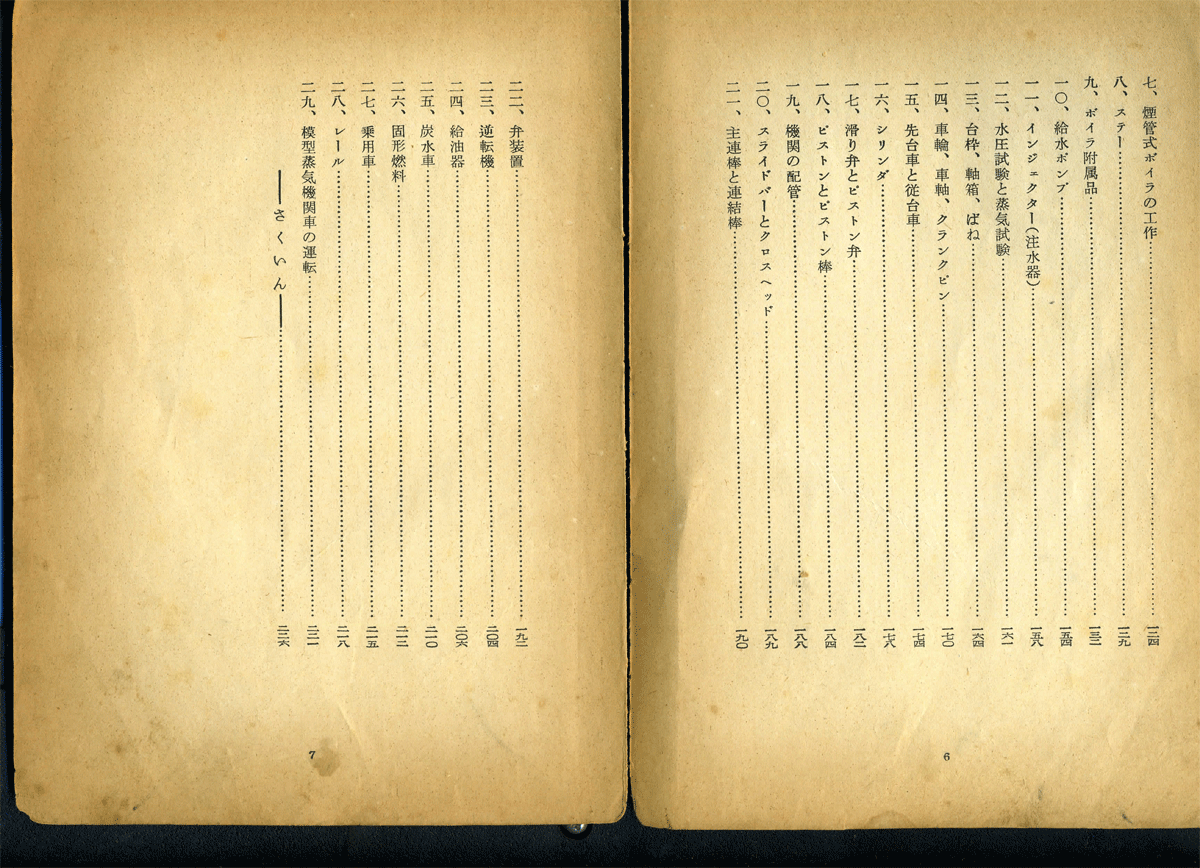 七、煙管式ボイラの工作……一二四
八、ステー……一二九
九、ボイラ附属品……一三二
一〇、給水ポンプ……一五四
一一、インジェクター(注水器)……一五八
一二、水圧試験と蒸気試験……一六一
一三、台枠、軸箱、ばね……一六四
一四、車輪、車軸、クランクピン……一七〇
一五、先台車と従台車……一七四
一六、シリンダ……一七八
一七、滑り弁とピストン弁……一八二
一八、ピストンとピストン棒……一八四
一九、機関の配管……一八八
二〇、スライドバーとクロスヘッド……一八九
二一、主連棒と連結棒……一九〇
6
二二、弁装置……一九二
二三、逆転機……二〇四
二四、給油器……二〇六
二五、炭水車……二一〇
二六、固形燃料……二一二
二七、乗用車……二一五
二八、レール……二一八
二九、模型蒸気機関車の運転……二三一
――さくいん――……二三六
7